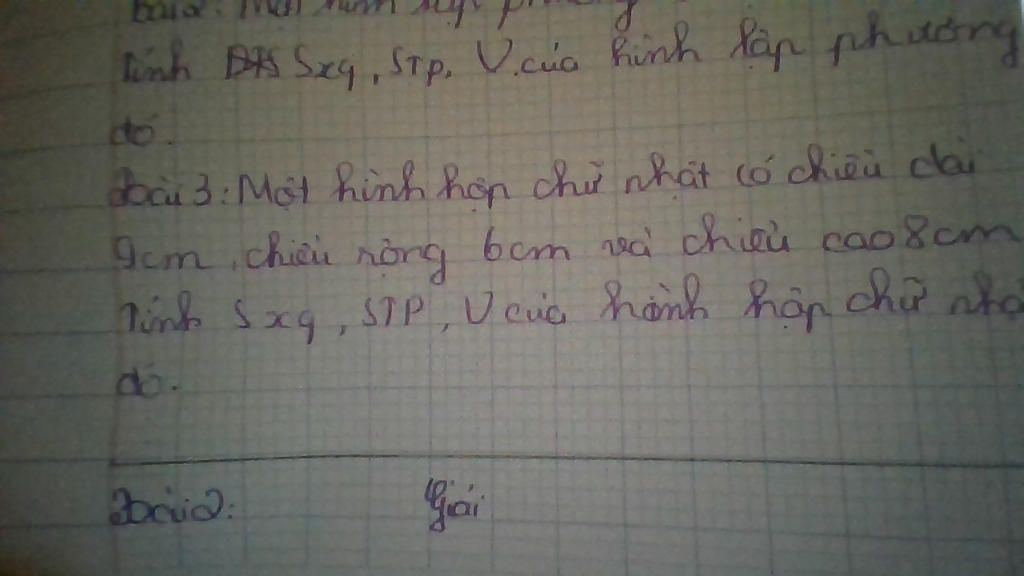 bài 2: Một hình lập phương
Tính Sxq, STP, V của hình lập phương
đó.
bài 3: Một hình hộp chữ nhật có chiều dài
9cm, chiều rộng 6cm và chiều cao 8cm
Tính Sxq, STP, V của hình hộp chữ
đó.
bài 2: Giải